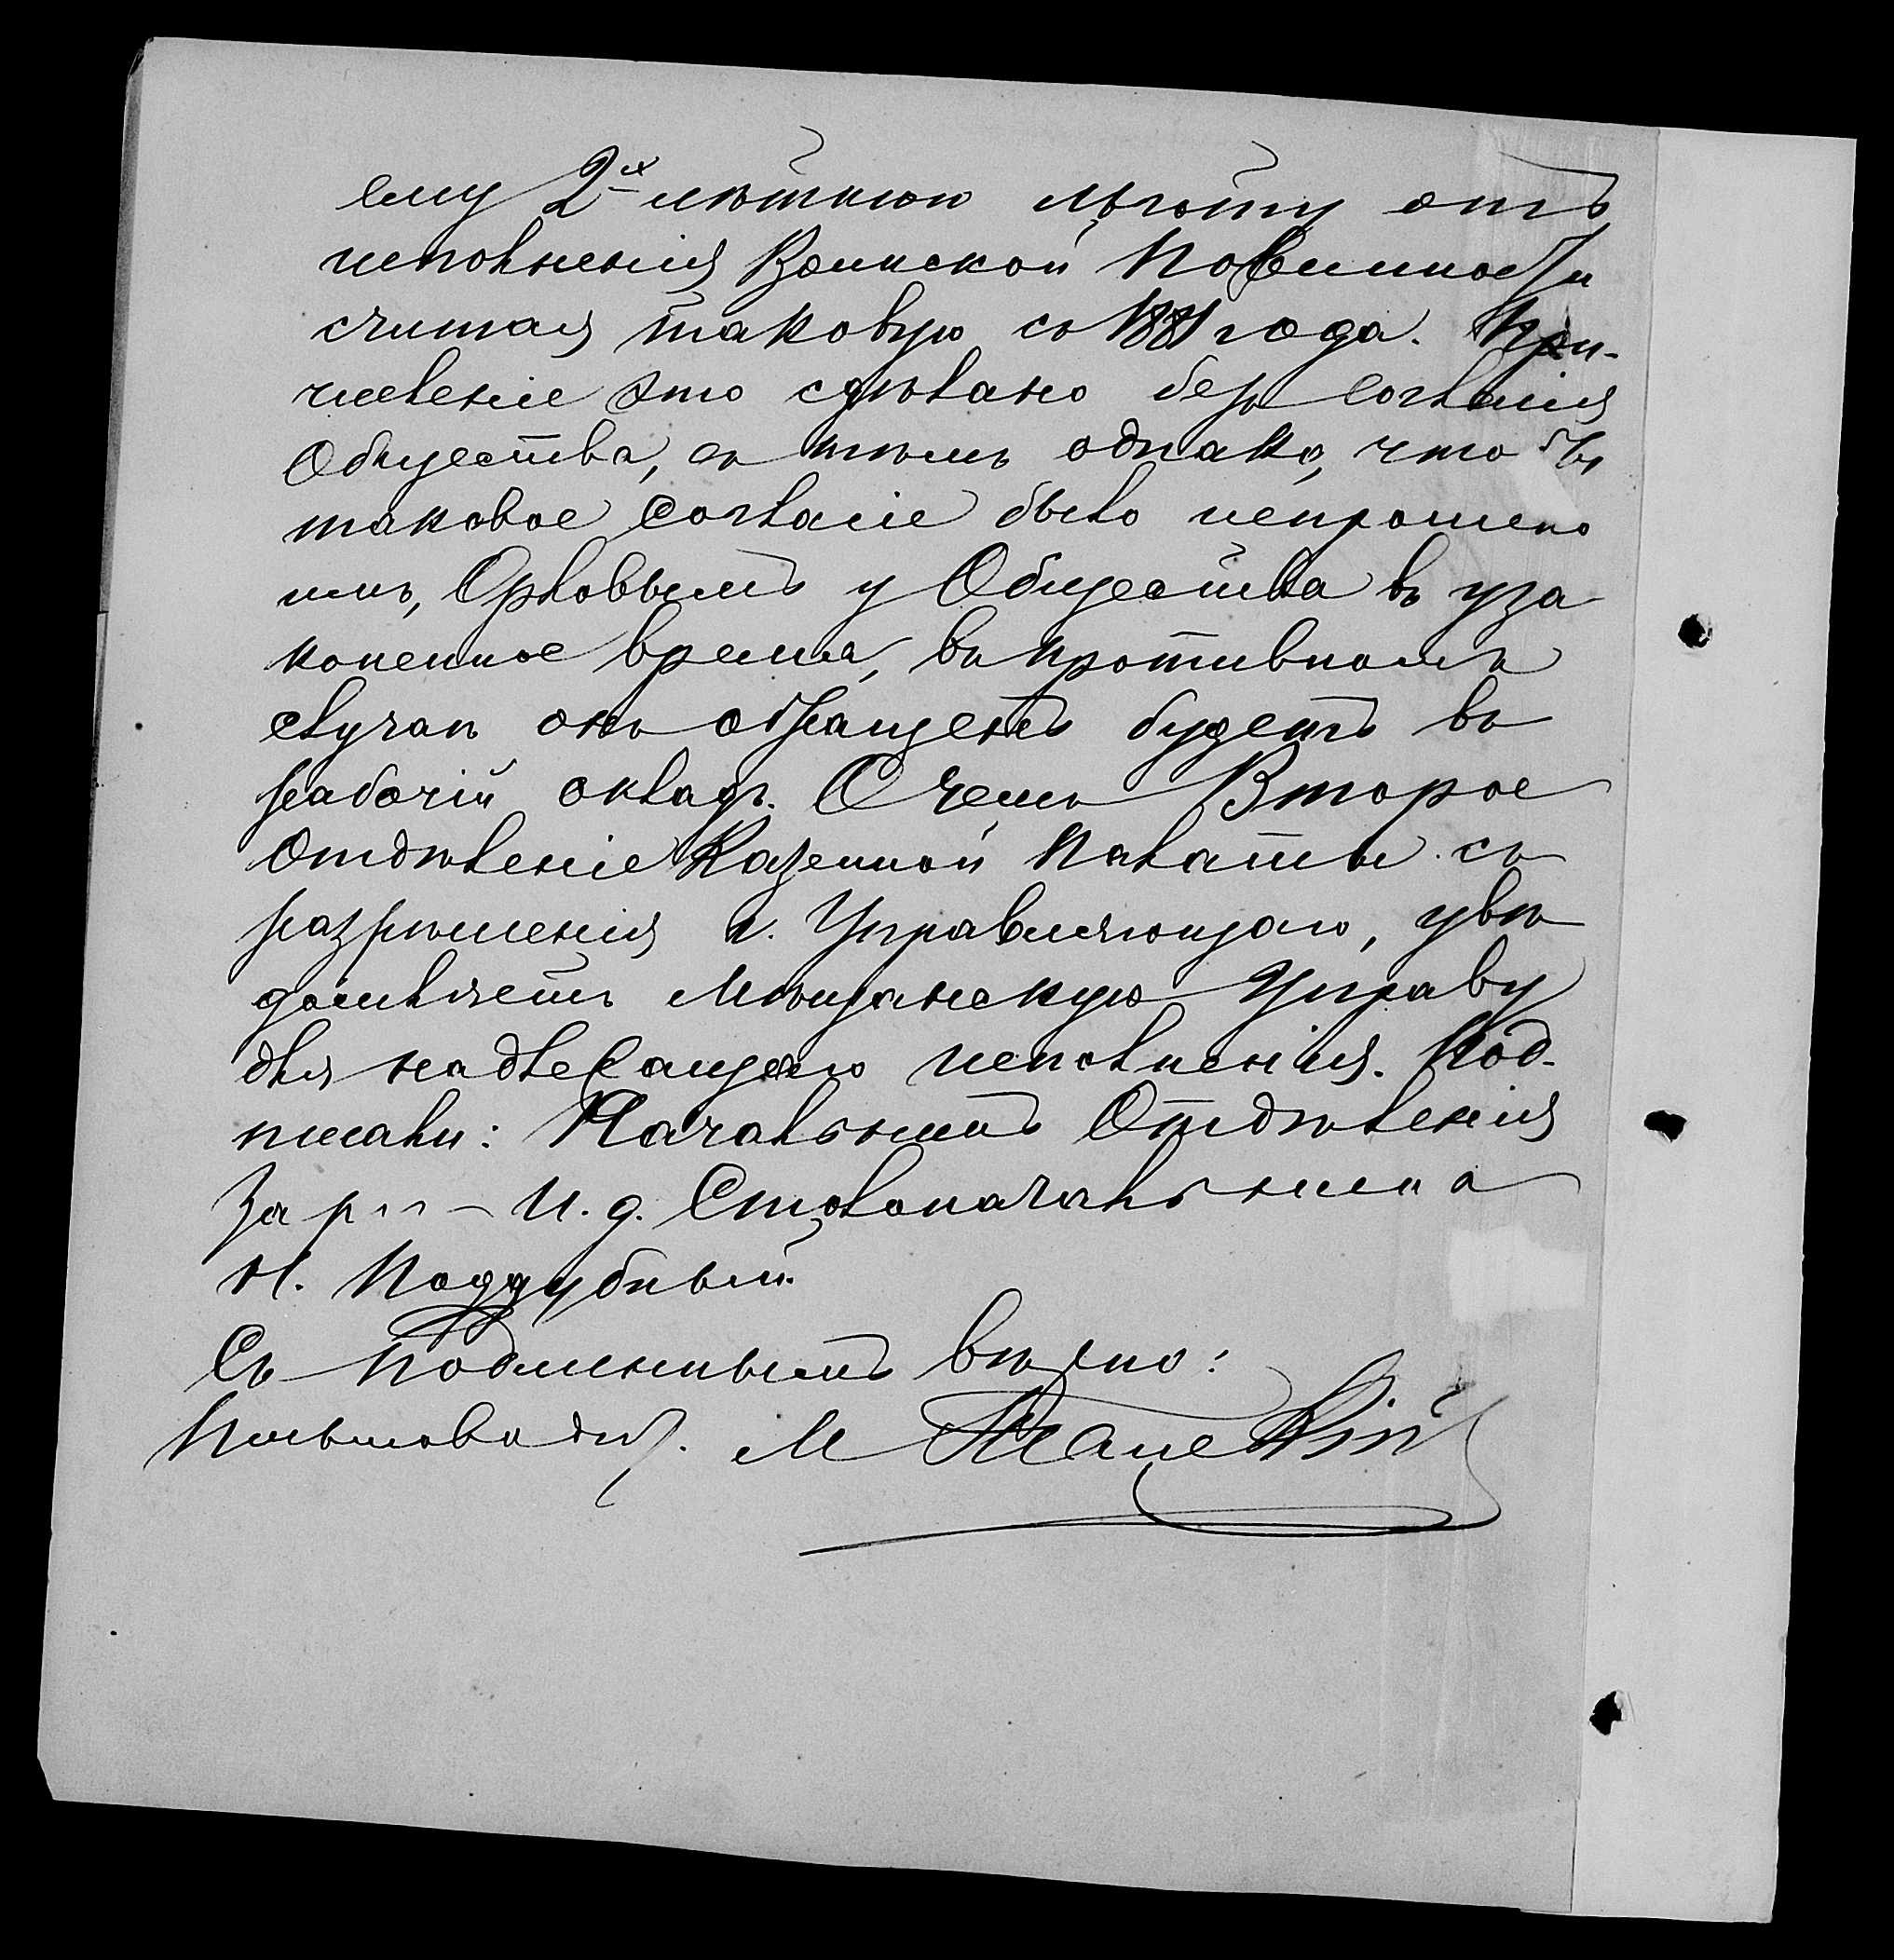 ему 2х лѣтнюю льготу отъ
исполненія Воинской Повинности
считая таковую съ 1881 года. При-
численіе это сдѣлано безъ согласія
Общества, съ тѣмъ однако, что бы
таковое согласіе было испрошено
имъ, Орловымъ у Общества въ уза
коненное время, въ противномъ
случаѣ онъ обращенъ будетъ въ
рабочій окладъ. О чемъ Второе
Отдѣленіе Казенной Палаты съ
разрѣшенія г. Управляющаго, увѣ
домляетъ Мѣщанскую Управу
для надлежащаго исполненія. Под-
писали: Начальникъ Отдѣленія
И. д. Столоначальника
Н. Поддубный.
Съ подлиннымъ вѣрно:
Письмоводит. М